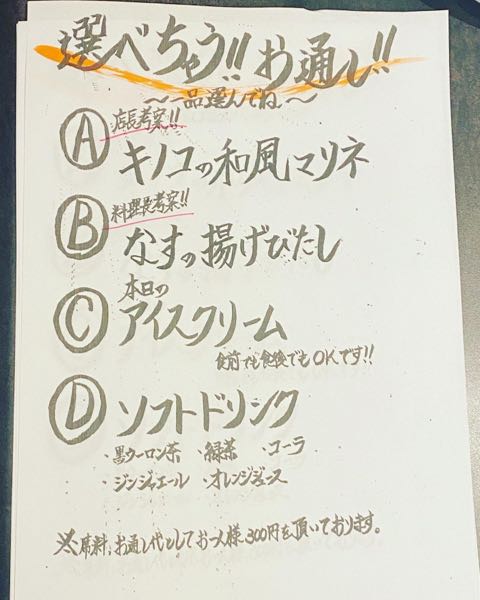 選べちゃう!!お通し!!
〜一品選んでね〜
A 店長考案!!
キノコの和風マリネ
B 料理長考案!!
なすの揚げびたし
C 本日の
アイスクリーム
食前でも食後でもOKです!!
D ソフトドリンク
・黒ウーロン茶 ・緑茶 ・コーラ
・ジンジャエール ・オレンジジュース
※席料、お通し代としてお一人様300円を頂いております。